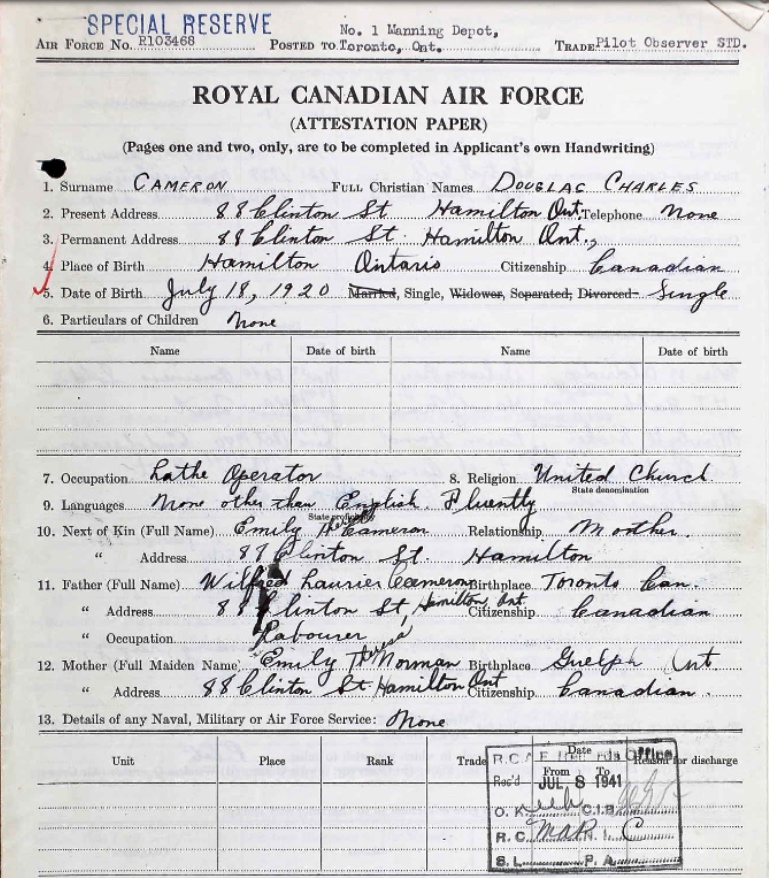 SPECIAL RESERVE
No. 1 Manning Depot,
AIR FORCE NO. R103468 POSTED TO Toronto, Ont. TRADE Pilot Observer STD.
ROYAL CANADIAN AIR FORCE
(ATTESTATION PAPER)
(Pages one and two, only, are to be completed in Applicant's own Handwriting)
1. Surname CAMERON FULL Christian Names DOUGLAS CHARLES
2. Present Address 88 Clinton St Hamilton Ont. Telephone None
3. Permanent Address 88 Clinton St. Hamilton Ont.,
4. Place of Birth Hamilton Ontario Citizenship Canadian
5. Date of Birth July 18, 1920 Married, Single, Widower, Separated, Divorced Single
6. Particulars of Children None
Name Date of birth Name Date of birth
7. Occupation Lathe Operator 8. Religion United Church
State denomination
9. Languages None other than English. Fluently
State proficiency
10. Next of Kin (Full Name) Emily Cameron Relationship Mother.
" Address 88 Clinton St. Hamilton
11. Father (Full Name) Wilfred Laurier Cameron Birthplace Toronto Can.
" Address 88 Clinton St, Hamilton Ont Citizenship Canadian
" Occupation Labourer
12. Mother (Full Maiden Name) Emily Theresa Norman Birthplace Guelph Ont.
" Address 88 Clinton St. Hamilton Ont Citizenship Canadian.
13. Details of any Naval, Military or Air Force Service: None
Unit Place Rank Trade Date Reason for discharge
From To
R.C.A.F. Office
Rec'd JUL 8 1941
O.K. C.I.B.
R.C. MAR N.I. C
S.L. P.A.